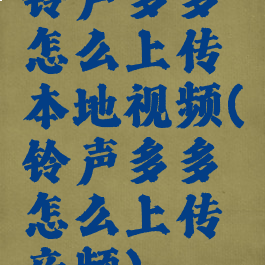 铃声多多
怎么上传
本地视频(
铃声多多
怎么上传
音频)